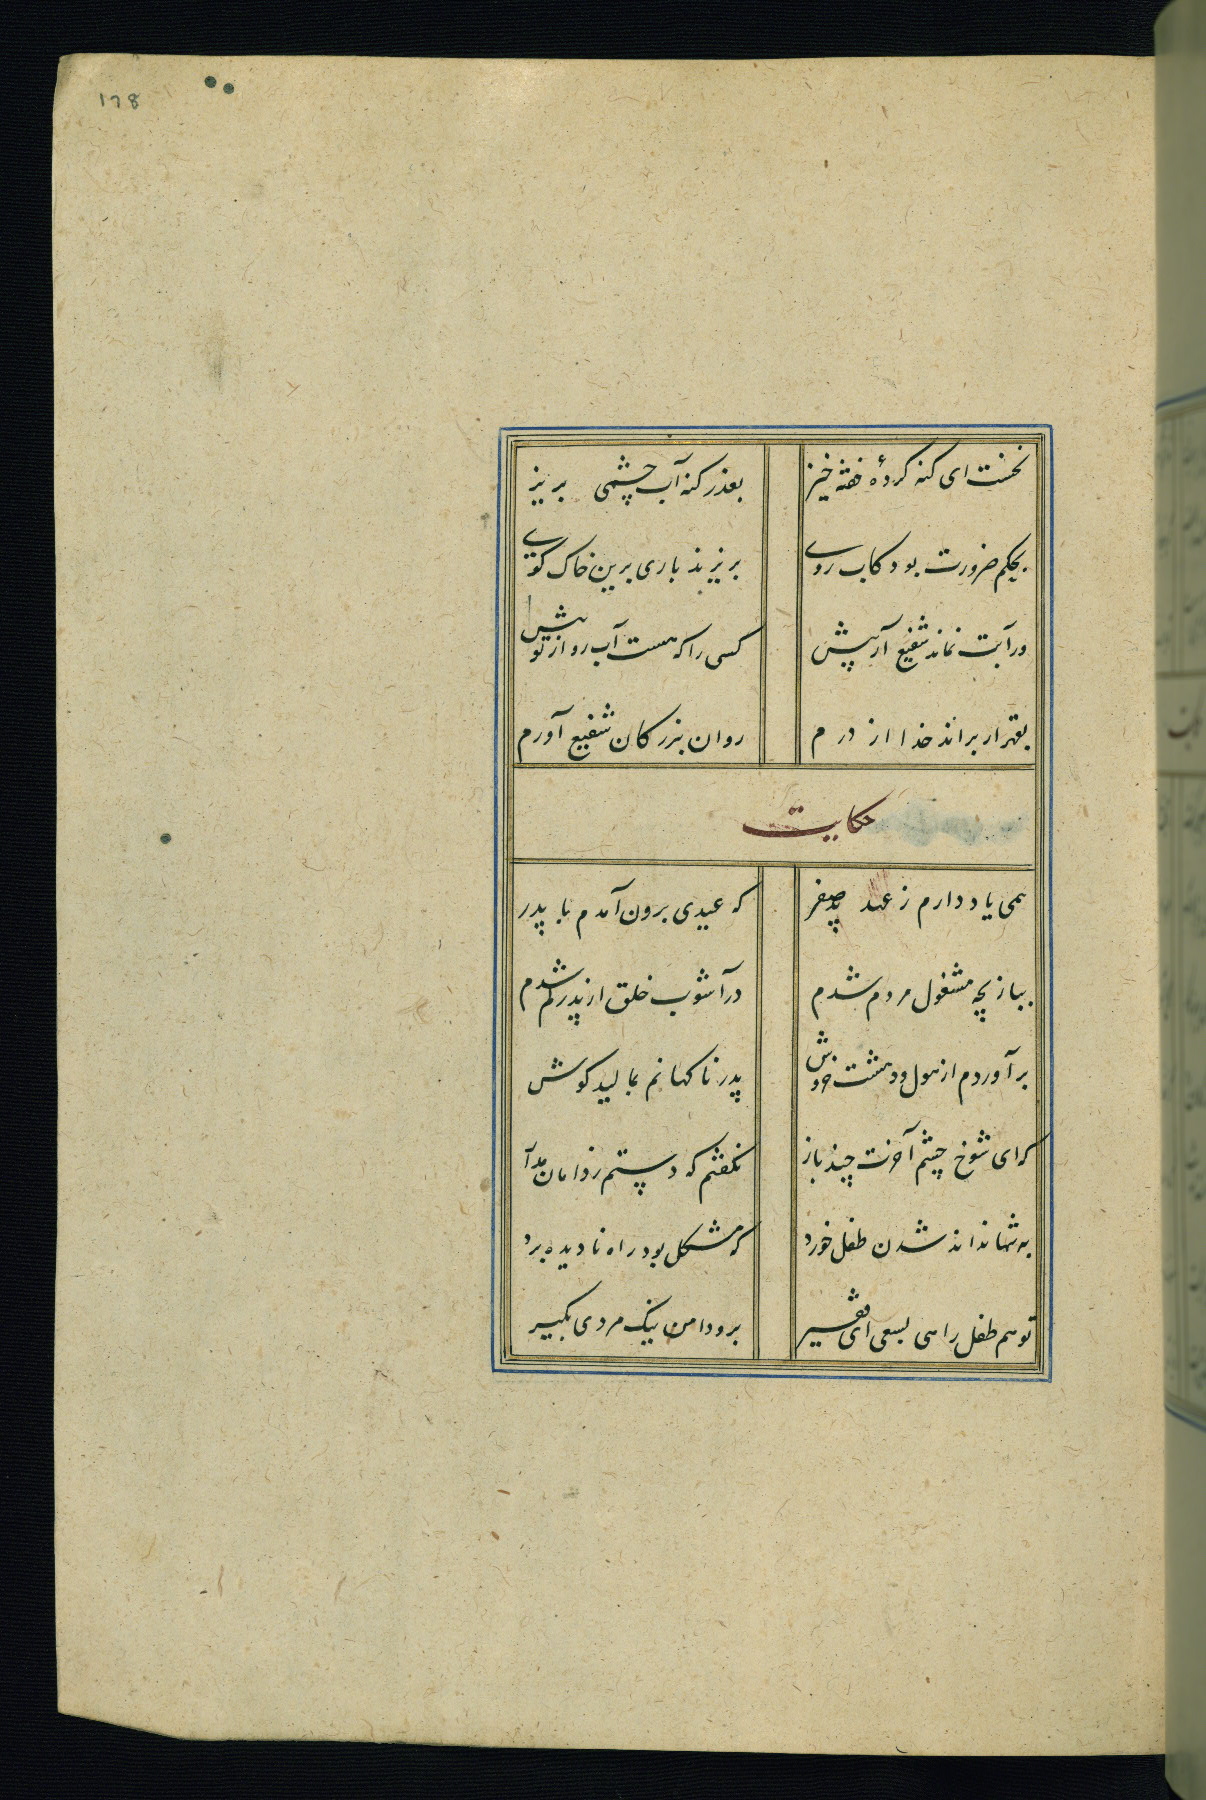 178
نخست ای کنه کردهٔ خفته خیز
بعذر کنه آب چشمی بریز
بحکم ضرورت بود کاب روی
بریزند باری برین خاک کوی
ور آبت نماند شفیع آر پیش
کسی را که هست آب رو از تو بیش
بقهر ار براند خدا از درم
روان بزرکان شفیع آورم
حکایت
همی یاد دارم ز عهد صغر
که عیدی برون آمدم با پدر
ببازیچه مشغول مردم شدم
در آشوب خلق از پدر کم شدم
بر آوردم از هول و دهشت خروش
پدر ناکهانم بمالید کوش
که ای شوخ چشم آخرت چند باز
نکفتم که دستم ز دامان مدار
به تنها نداند شدن طفل خورد
که مشکل بود راه نادیده برد
تو هم طفل راهی بسعی ای فقیر
برو دامن نیک مردی بکیر